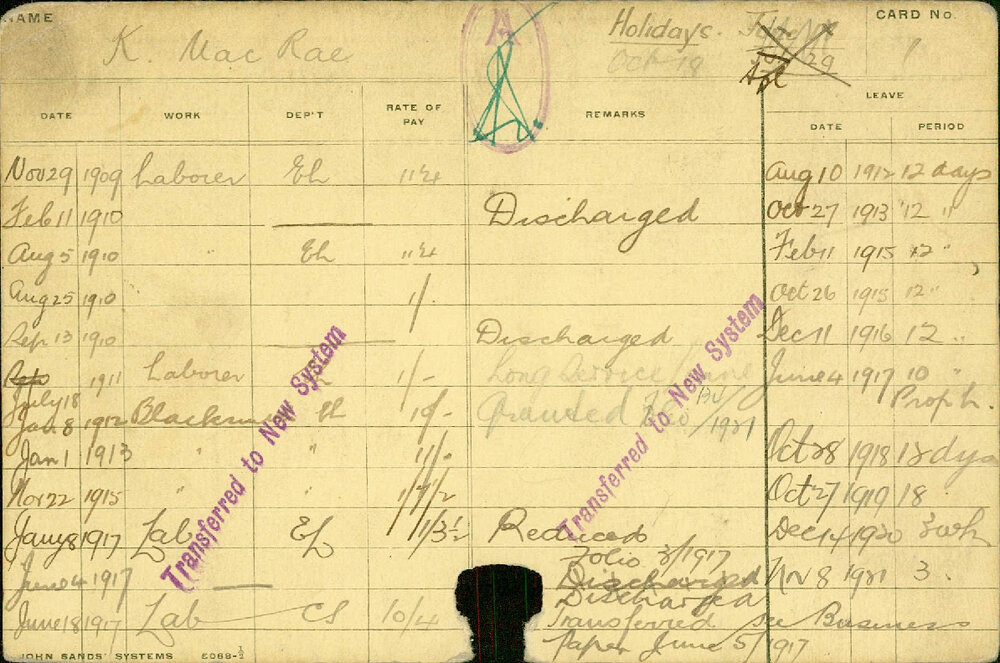 NAME K. Mac Rae Holidays. Oct 19 Apl CARD No. 1
DATE WORK DEP'T RATE OF PAY REMARKS LEAVE
DATE PERIOD
Nov 29 1909 Laborer Eh 11¼ Aug 10 1912 12 days
Feb 11 1910 Discharged Oct 27 1913 12 "
Aug 5 1910 " Eh 11¼ Feb 11 1915 12 "
Aug 25 1910 1/- Oct 26 1915 12 "
Sep 13 1910 Discharged Dec 11 1916 12 "
July 18 1911 Laborer 1/- Long Service June 4 1917 10 "
Jan 8 1912 Granted 1921 Prop h.
Jan 1 1913 " " Oct 28 1918 12 dys
Nov 22 1915 " " Oct 27 1919 18
Jany 8 1917 Lab Eh 1/3½ Reduced Dec 14 1920 3 wk
Folio 3/1917
June 4 1917 Discharged Nov 8 1921 3
Discharged
June 18 1917 Lab CS 10/4 Transferred see Business
Paper June 5/1917
Transferred to New System
Transferred to New System
JOHN SANDS' SYSTEMS